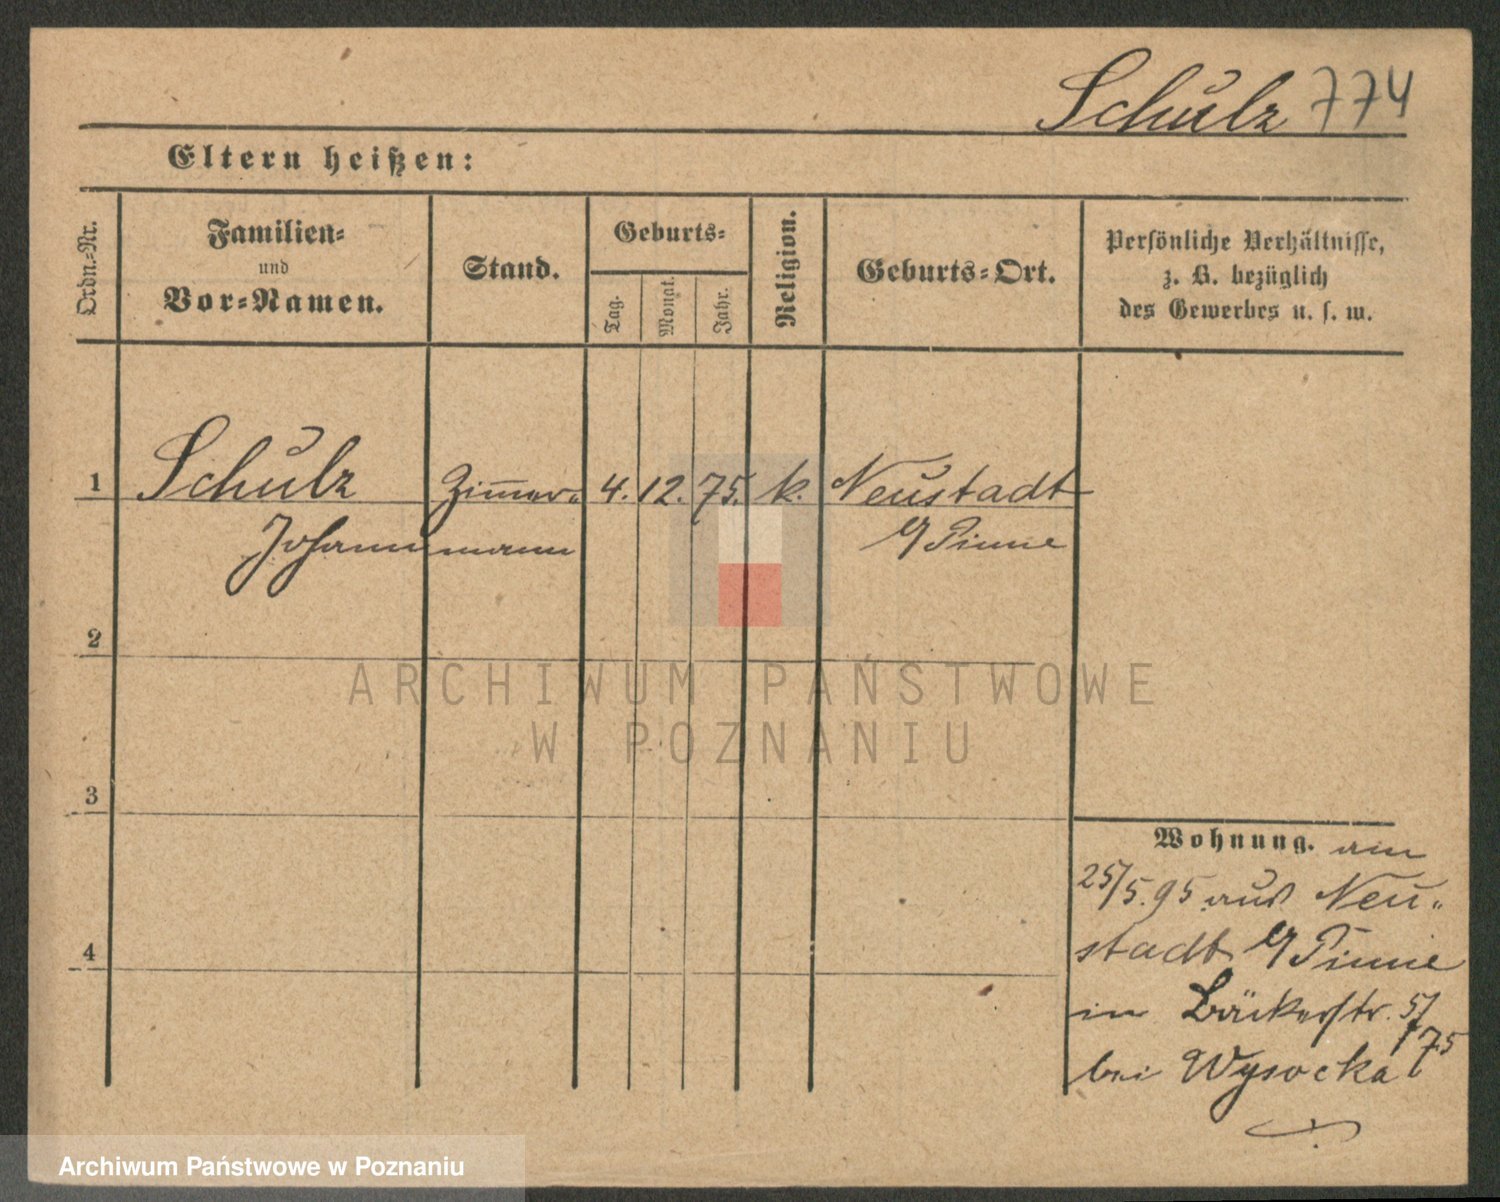 Schulz 774
Eltern heißen:
Ordn.-Nr.
Familien-
und
Vor-Namen.
Stand.
Geburts-
Tag.
Monat.
Jahr.
Religion.
Geburts-Ort.
Persönliche Verhältnisse,
z. B. bezüglich
des Gewerbes u. s. w.
1 Schulz Zimmer- 4. 12. 75. k. Neustadt
Johann mann b/Pinne
2
3
4
Wohnung. am
25/5.95 aus Neu-
stadt b/Pinne
in Bäckerstr. 5/
bei Wysocka 75
ARCHIWUM PAŃSTWOWE
W POZNANIU
Archiwum Państwowe w Poznaniu